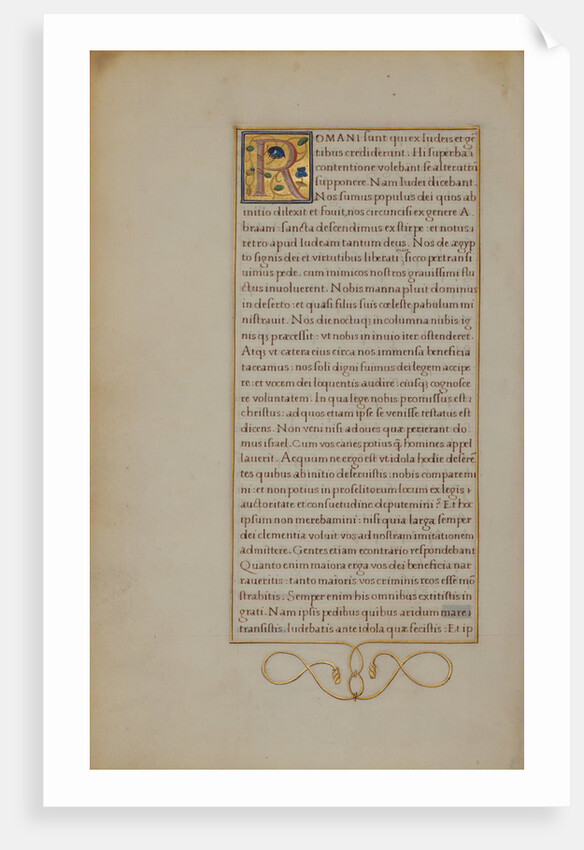 ROMANI sunt qui ex Iudeis et gē
tibus crediderunt. Hi superba
contentione volebant se alterutrū
supponere. Nam Iudei dicebant.
Nos sumus populus dei quios ab
initio dilexit et fouit, nos circuncisi ex genere A
braam: sancta descendimus ex stirpe: et notus
retro apud Iudeam tantum deus. Nos de ægyp
to signis dei et virtutibus liberati: sicco pertransi
uimus pede. cum inimicos nostros grauissimi flu
ctus inuoluerent. Nobis manna pluit dominus
in deserto: et quasi filiis suis cœleste pabulum mi
nistrauit. Nos die noctuq; in columna nubis ig
nis q; præcessit: vt nobis in inuio iter ostenderet.
Atq; vt cætera eius circa nos immensa beneficia
taceamus: nos soli digni fuimus dei legem accipe
re: et vocem dei loquentis audire: eiusq; cognosce
re voluntatem. In qua lege nobis promissus est
christus: ad quos etiam ipse se venisse testatus est
dicens. Non veni nisi ad oues quæ perierant do
mus israel. Cum vos canes potius q̃ homines appel
lauerit. Aecquum ne ergo est vt idola hodie deserē
tes quibus ab initio deseruistis: nobis comparemi
ni: et non potius in proselitorum locum ex legis
auctoritate et consuetudine deputemini? Et hoc
ipsum non merebamini: nisi quia larga semper
dei clementia voluit vos ad nostram imitationem
admittere. Gentes etiam econtrario respondebant
Quanto enim maiora erga vos dei beneficia nar
raueritis: tanto maioris vos criminis reos esse mō
strabitis. Semper enim his omnibus extitistis in
grati. Nam ipsis pedibus quibus aridum mare
transistis. ludebatis ante idola quæ fecistis: Et ip